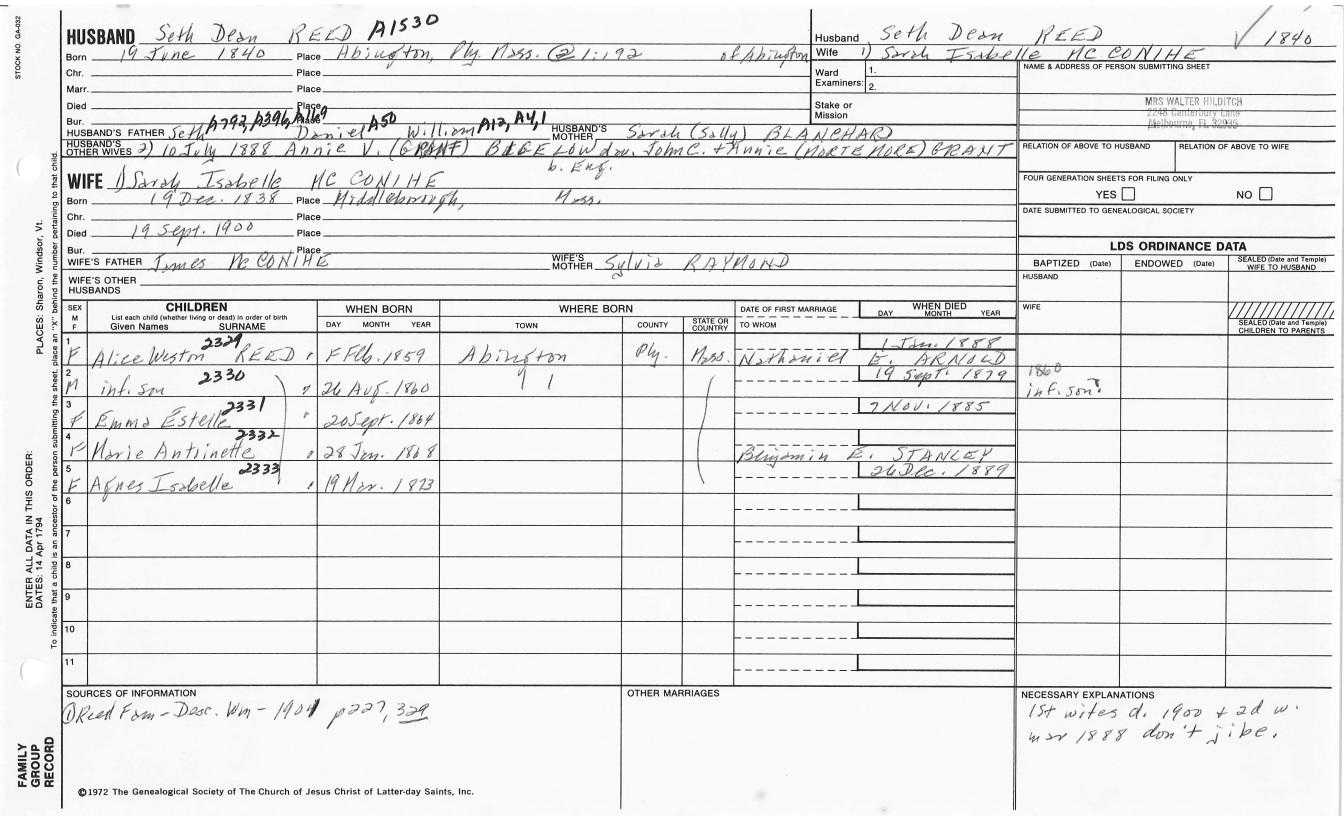 STOCK NO. GA-032
HUSBAND Seth Dean REED A1530
Born 19 June 1840 Place Abington, Ply. Mass. @ 1:192 of Abington
Chr. Place
Marr. Place
Died Place
Bur. Place
HUSBAND'S FATHER Seth A792, A396, A169 Daniel A50 William A12, A4, 1 HUSBAND'S MOTHER Sarah (Sally) BLANCHARD
HUSBAND'S OTHER WIVES 2) 10 July 1888 Annie V. (GRANT) BIGELOW dau. John C. + Annie (MORTEMORE) GRANT
b. Eng.
WIFE 1) Sarah Isabelle MC CONIHE
Born 19 Dec. 1838 Place Middleborough, Mass.
Chr. Place
Died 19 Sept. 1900 Place
Bur. Place
WIFE'S FATHER James McCONIHE WIFE'S MOTHER Sylvia RAYMOND
WIFE'S OTHER HUSBANDS
Husband Seth Dean REED ✓ 1840
Wife 1) Sarah Isabelle MC CONIHE
Ward Examiners: 1.
2.
Stake or Mission
NAME & ADDRESS OF PERSON SUBMITTING SHEET
MRS WALTER HILDITCH
2248 Canterbury Lane
Melbourne, FL 32935
RELATION OF ABOVE TO HUSBAND RELATION OF ABOVE TO WIFE
FOUR GENERATION SHEETS FOR FILING ONLY
YES NO
DATE SUBMITTED TO GENEALOGICAL SOCIETY
LDS ORDINANCE DATA
BAPTIZED (Date) ENDOWED (Date) SEALED (Date and Temple) WIFE TO HUSBAND
HUSBAND
WIFE
SEALED (Date and Temple) CHILDREN TO PARENTS
SEX M F CHILDREN List each child (whether living or dead) in order of birth Given Names SURNAME WHEN BORN DAY MONTH YEAR WHERE BORN TOWN COUNTY STATE OR COUNTRY DATE OF FIRST MARRIAGE TO WHOM WHEN DIED DAY MONTH YEAR
1 2329 1 Jan. 1888
F Alice Weston REED " F Feb. 1859 Abington Ply. Mass. Nathaniel E. ARNOLD
2 2330 19 Sept. 1879 1860
M inf. son " 26 Aug. 1860 " inf. son?
3 2331 7 Nov. 1885
F Emma Estelle " 20 Sept. 1864
4 2332
F Marie Antoinette " 28 Jan. 1868 Benjamin E. STANLEY
5 2333 26 Dec. 1889
F Agnes Isabelle " 19 Mar. 1873
6
7
8
9
10
11
SOURCES OF INFORMATION
① Reed Fam - Desc. Wm - 1901 p 227, 329
OTHER MARRIAGES
NECESSARY EXPLANATIONS
1st wifes d. 1900 + 2d w.
mar 1888 don't jibe.
©1972 The Genealogical Society of The Church of Jesus Christ of Latter-day Saints, Inc.
FAMILY GROUP RECORD
ENTER ALL DATA IN THIS ORDER:
DATES: 14 Apr 1794
PLACES: Sharon, Windsor, Vt.
To indicate that a child is an ancestor of the person submitting the sheet, place an "X" behind the number pertaining to that child.